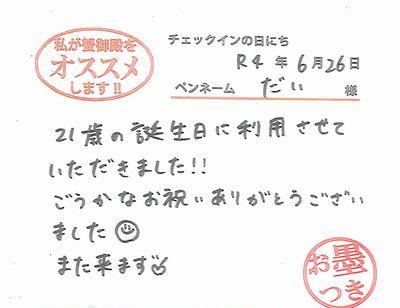 私が蟹御殿を
オススメ
します!!
チェックインの日にち
R4 年 6月26日
ペンネーム だい 様
21歳の誕生日に利用させて
いただきました!!
ごうかなお祝いありがとうござい
ました
また来ます
お墨
つき